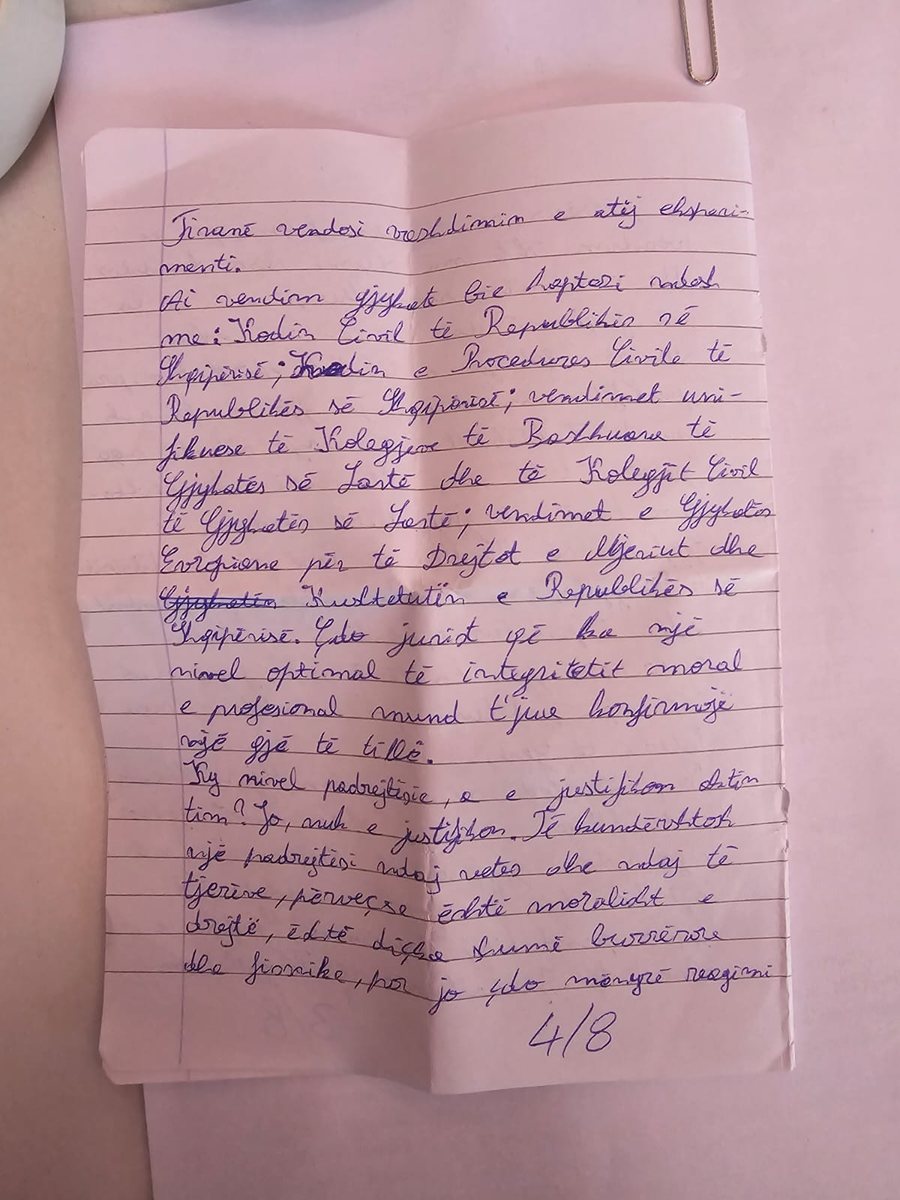 Tiranë vendosi vazhdimin e atij eksperi-
menti.
Ai vendim gjyqate bie haptazi ndesh
me: Kodin Civil të Republikës së
Shqipërisë; Kodin e Procedures Civile të
Republikës së Shqipërisë; vendimet uni-
fikuese të Kolegjeve të Bashkuara të
Gjykatës së Lartë dhe të Kolegjit Civil
të Gjykatës së Lartë; vendimet e Gjykatës
Evropiane për të Drejtat e Njeriut dhe
Gjykatën Kushtetutën e Republikës së
Shqipërisë. Çdo jurist që ka një
nivel optimal të integritetit moral
e profesional mund t'jua konfirmojë
një gjë të tillë.
Ky nivel padrejtësie, a e justifikon aktin
tim? Jo, nuk e justifikon. Të kundërshtosh
një padrejtësi ndaj vetes dhe ndaj të
tjerëve, përveçse është moralisht e
drejtë, është diçka shumë burrërore
dhe fisnike, por jo çdo mënyrë reagimi
4/8